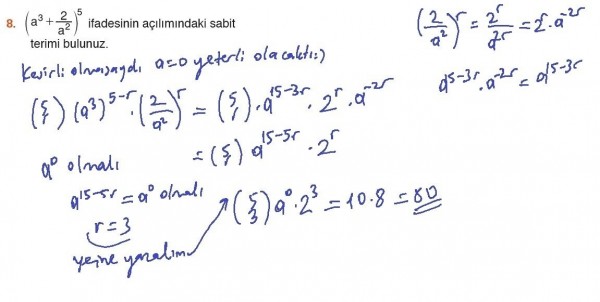 8. (a³ + 2/a²)⁵ ifadesinin açılımındaki sabit
terimi bulunuz.
(2/a²)ʳ = 2ʳ/a²ʳ = 2ʳ.a⁻²ʳ
Kesirli olmasaydı a=0 yeterli olacaktı:)
a¹⁵⁻³ʳ.a⁻²ʳ = a¹⁵⁻³ʳ
(5 r) (a³)⁵⁻ʳ.(2/a²)ʳ = (5 r).a¹⁵⁻³ʳ.2ʳ.a⁻²ʳ
= (5 r) a¹⁵⁻⁵ʳ.2ʳ
a⁰ olmalı
a¹⁵⁻⁵ʳ = a⁰ olmalı
r=3
yerine yazalım
(5 3) a⁰.2³ = 10.8 = 80